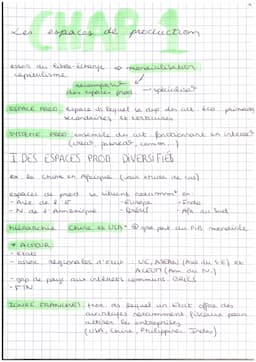 CHAP 1
Les espaces de production
essor du libre-échange → mondialisation
capitalisme
recomposit°
des espaces prod → spécialisés
ESPACE PROD. Espace ds lequel se dvp. des act. éco primaires,
secondaires et tertiaires
SYSTÈME PROD. ensemble des act. fonctionnant en interact°
I. DES ESPACES PROD. DIVERSIFIÉS
ex. la Chine en Afrique
espaces de prod. se situent notamment en :
- Asie de l'E - Europe - Inde
- N. de l'Amérique - Brésil - Afq. du Sud
Hiérarchie Chine et USA = gde part du PIB mondiale
* ACTEUR
- Etats
- assoc. régionales d'état UE, ASEAN (Asie du S-E) et
ALENA (Am. du N.)
- grp de pays aux intérêts communs. BRICS
- FTN
ZONES FRANCHES. ds lequel un Etat offre des
avantages notamment fiscaux pour
attirer les entreprises
(USA, Chine, Philippines, Inde)